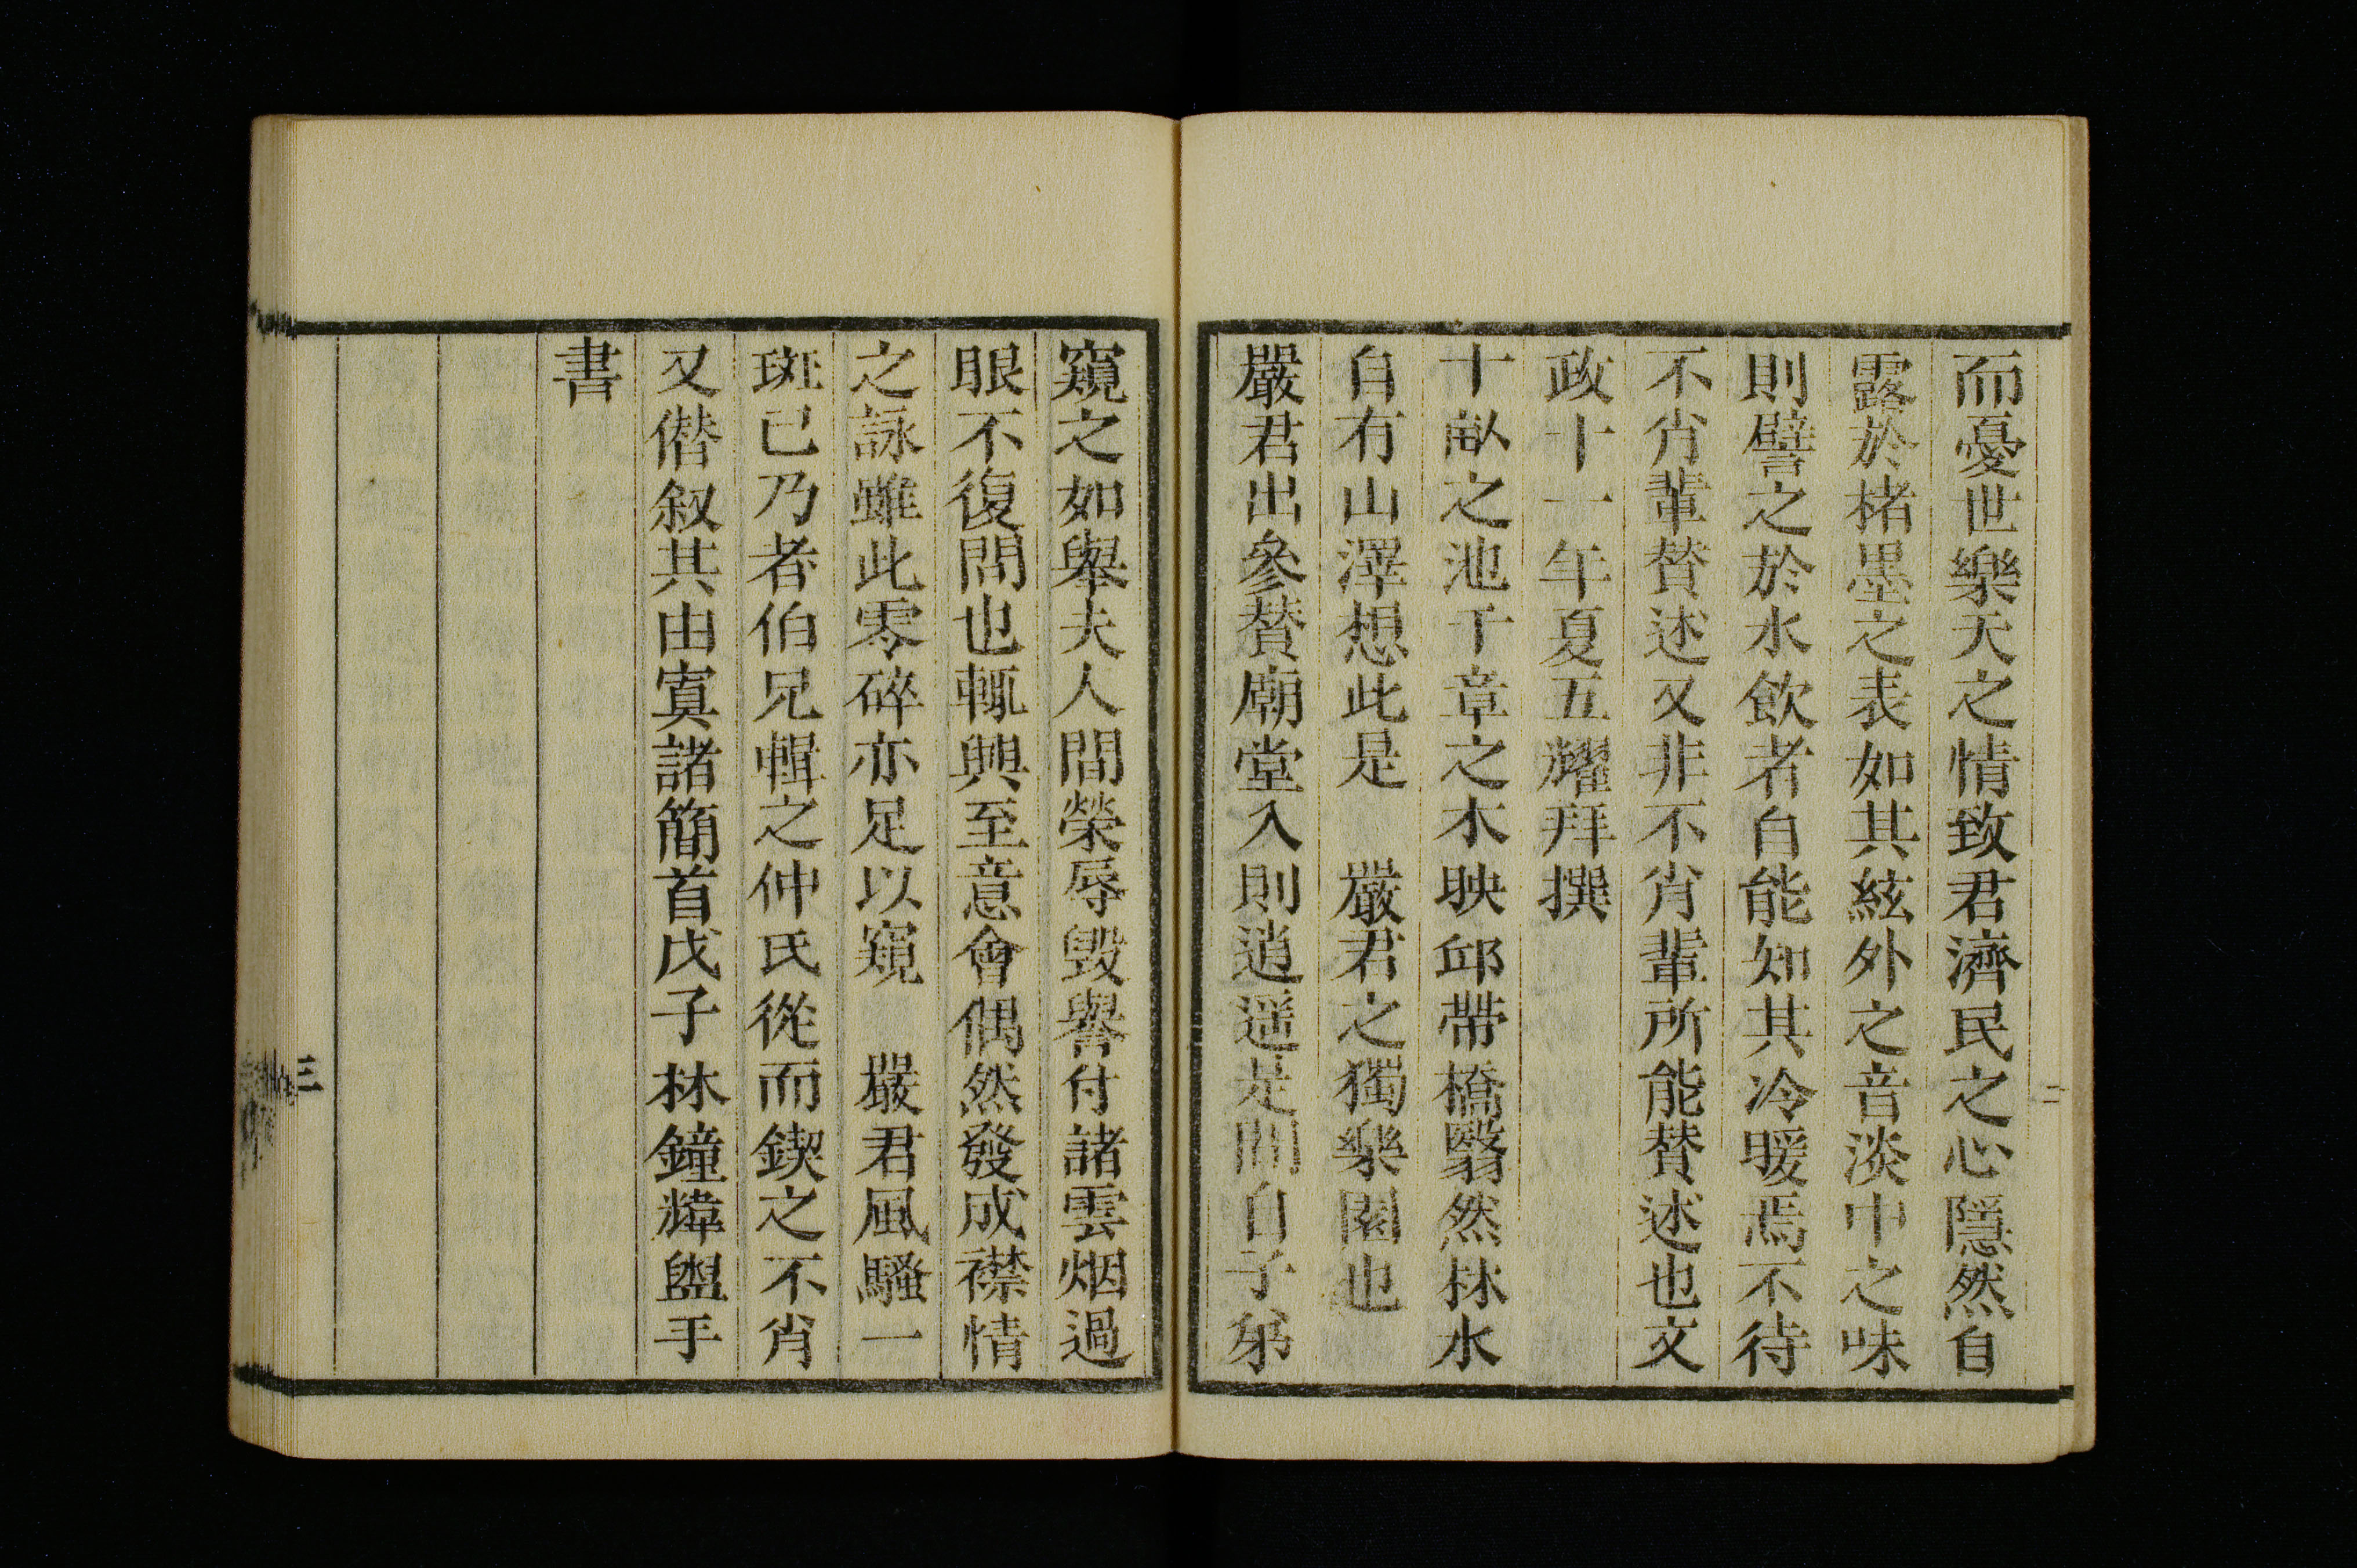 而憂世樂天之情致君濟民之心隱然自
露於楮墨之表如其絃外之音淡中之味
則譬之於水飲者自能知其冷暖焉不待
不肖輩賛述又非不肖輩所能賛述也文
政十一年夏五耀拜撰
十畝之池千章之木映邱帶橋翳然林水
自有山澤想此是　嚴君之獨樂園也
嚴君出參賛廟堂入則逍遥是間自子弟
窺之如舉夫人間榮辱毀譽付諸雲烟過
眼不復問也輒興至意會偶然發成襟情
之詠雖此零碎亦足以窺　嚴君風騷一
斑已乃者伯兄輯之仲氏從而鍥之不肖
又僭叙其由寘諸簡首戊子林鐘煒盥手
書
二
三